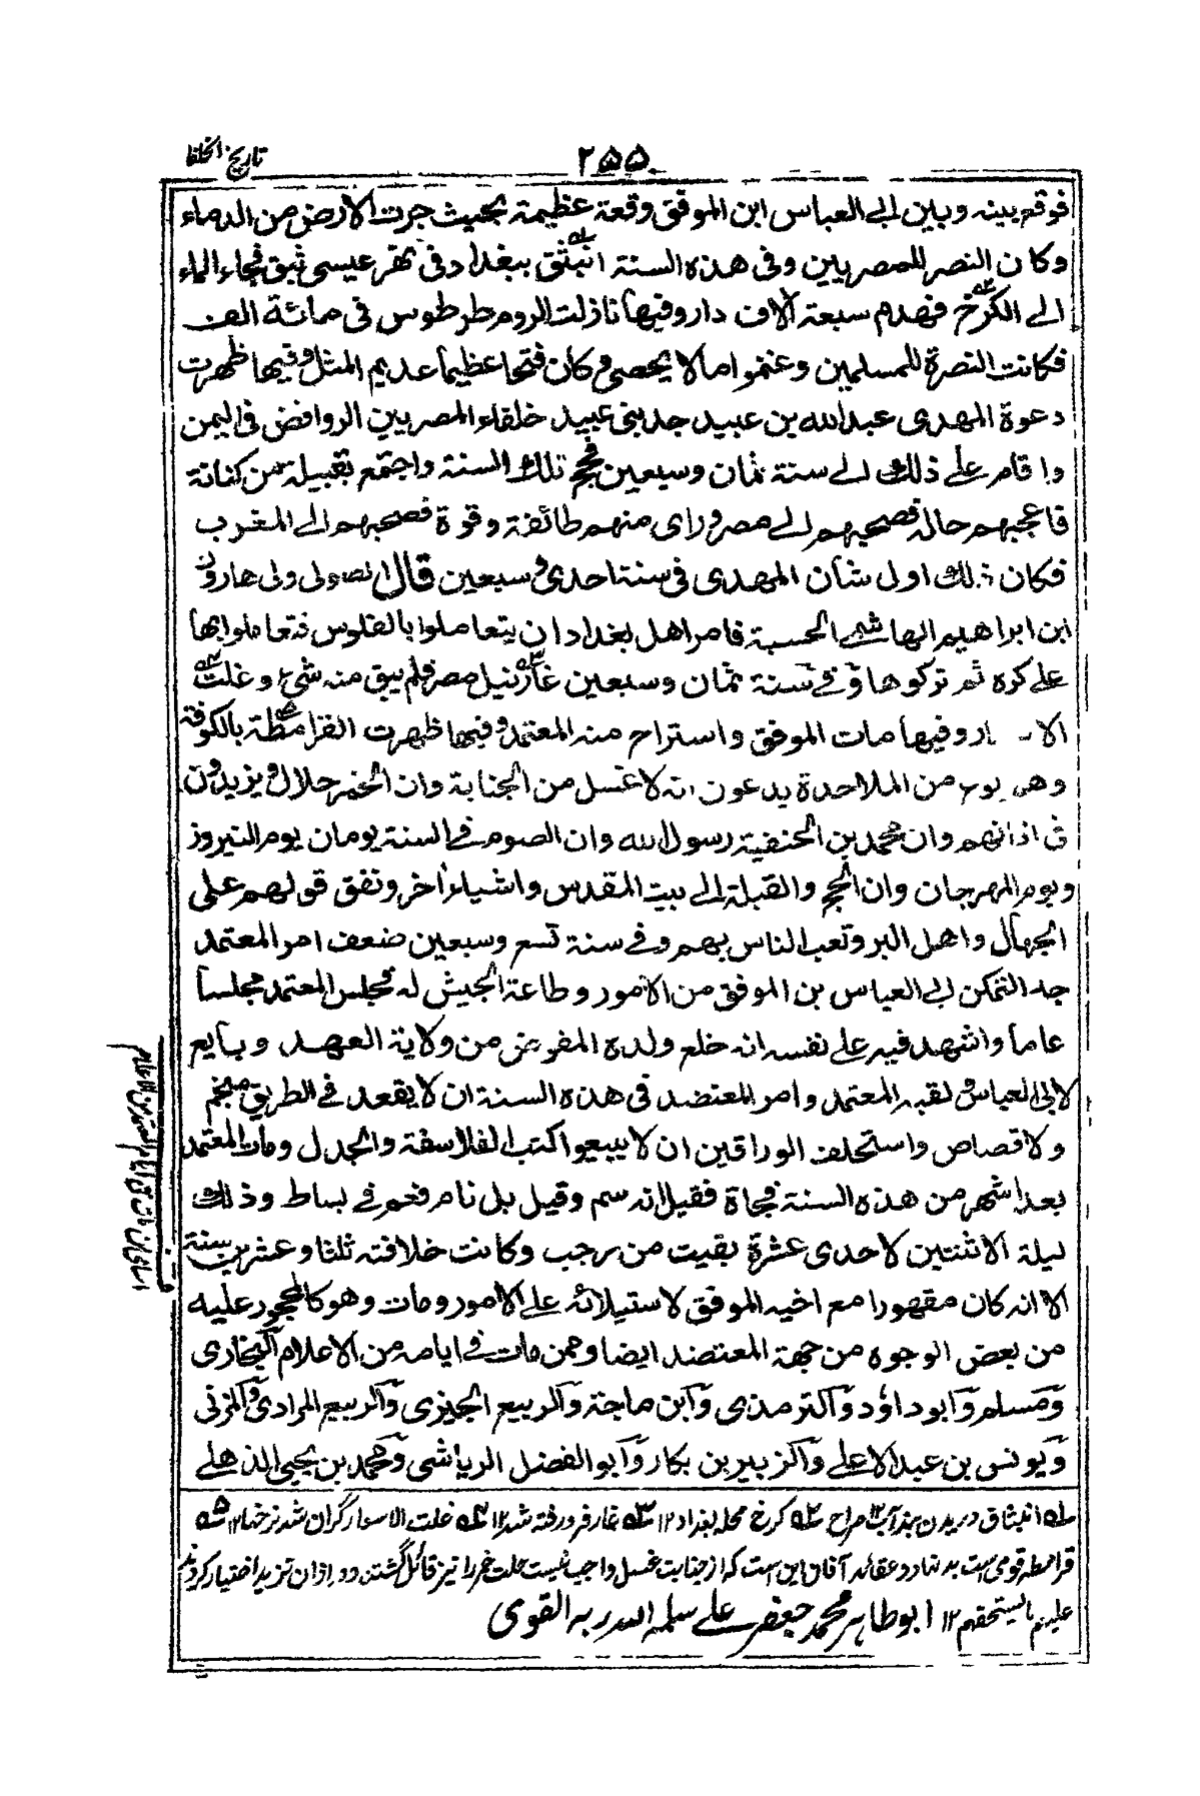 تاريخ الخلفا
٢٥٥
فوقع بينه وبين ابى العباس ابن الموفق وقعة عظيمة بحيث جرت الارض من الدماء
وكان النصر للمصريين وفى هذه السنة انبثق ببغداد فى نهر عيسى بثق فجاء الماء
الى الكرخ فهدم سبعة الاف دار وفيها نازلت الروم طرطوس فى مائة الف
فكانت النصرة للمسلمين وغنموا مالا يحصى وكان فتحا عظيما عديم المثل وفيها ظهرت
دعوة المهدى عبد الله بن عبيد جد بنى عبيد خلفاء المصريين الروافض فى اليمن
واقام على ذلك الى سنة ثمان وسبعين فحج تلك السنة واجتمع بقبيلة من كنانة
فاعجبهم حاله فصحبهم الى مصر وراى منهم طائفة وقوة فصحبهم الى المغرب
فكان ذلك اول شأن المهدى فى سنة احدى وسبعين قال الصولى ولى هارون
ابن ابراهيم الهاشمى الحسبة فامر اهل بغداد ان يتعاملوا بالفلوس فتعاملوا بها
على كره ثم تركوها وفى سنة ثمان وسبعين غار نيل مصر فلم يبق منه شىء وغلت
الاسعار وفيها مات الموفق واستراح منه المعتمد وفيها ظهرت القرامطة بالكوفة
وهم نوع من الملاحدة يدعون انه لا غسل من الجنابة وان الخمر حلال ويزيدون
فى اذانهم وان محمد بن الحنفية رسول الله وان الصوم فى السنة يومان يوم النيروز
ويوم المهرجان وان الحج والقبلة الى بيت المقدس واشياء اخر ونفق قولهم على
الجهال واهل البر وتعب الناس بهم وفى سنة تسع وسبعين ضعف امر المعتمد
جدا لتمكن ابى العباس بن الموفق من الامور وطاعة الجيش له فجلس المعتمد مجلسا
عاما واشهد فيه على نفسه انه خلع ولده المفوض من ولاية العهد وبايع
لابى العباس ولقبه المعتمد وامر المعتضد فى هذه السنة ان لا يقعد فى الطريق منجم
ولا قصاص واستحلف الوراقين ان لا يبيعوا كتب الفلاسفة والجدل ومات المعتمد
بعد اشهر من هذه السنة فجاة فقيل انه سم وقيل بل نام فغم فى بساط وذلك
ليلة الاثنتين لاحدى عشرة بقيت من رجب وكانت خلافته ثلثا وعشرين سنة
الا انه كان مقهورا مع اخيه الموفق لاستيلائه على الامور ومات وهو كالمحجور عليه
من بعض الوجوه من جهة المعتضد ايضا وممن مات فى ايامه من الاعلام البخارى
ومسلم وابو داؤد والترمذى وابن ماجة والربيع الجيزى والربيع المرادى والمزنى
ويونس بن عبد الاعلى والزبير بن بكار وابو الفضل الرياشى ومحمد بن يحيى الذهلى
له انبثاق دريدن بند آب ١٢ صراح كرخ محله بغداد ١٢ غار فرورفته شد ١٢ غلت الاسعار گران شد نرخها ١٢
قرامطه قومى است بدنهاد و عقائد آفاق اين است كه از جنابت غسل واجب نيست حلت خمر را نيز قائل گشتند و در اذان تزيد اختيار كردند
عليهم ما يستحقهم ١٢ ابوطاهر محمد جعفر على سلمه الله ربه القوى